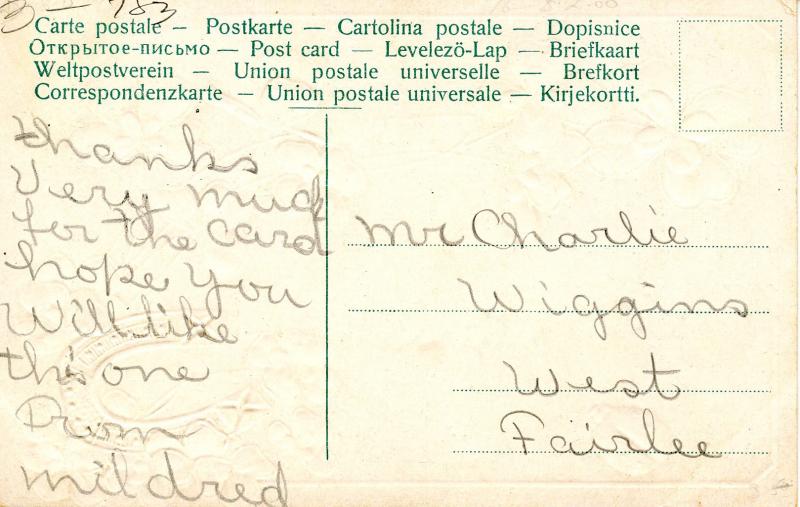 3 - 783
Carte postale — Postkarte — Cartolina postale — Dopisnice
Открытое-письмо — Post card — Levelezö-Lap — Briefkaart
Weltpostverein — Union postale universelle — Brefkort
Correspondenzkarte — Union postale universale — Kirjekortti.
thanks
Very much
for the card
hope you
Will like
this one
From
mildred
mr Charlie
Wiggins
West
Fairlee